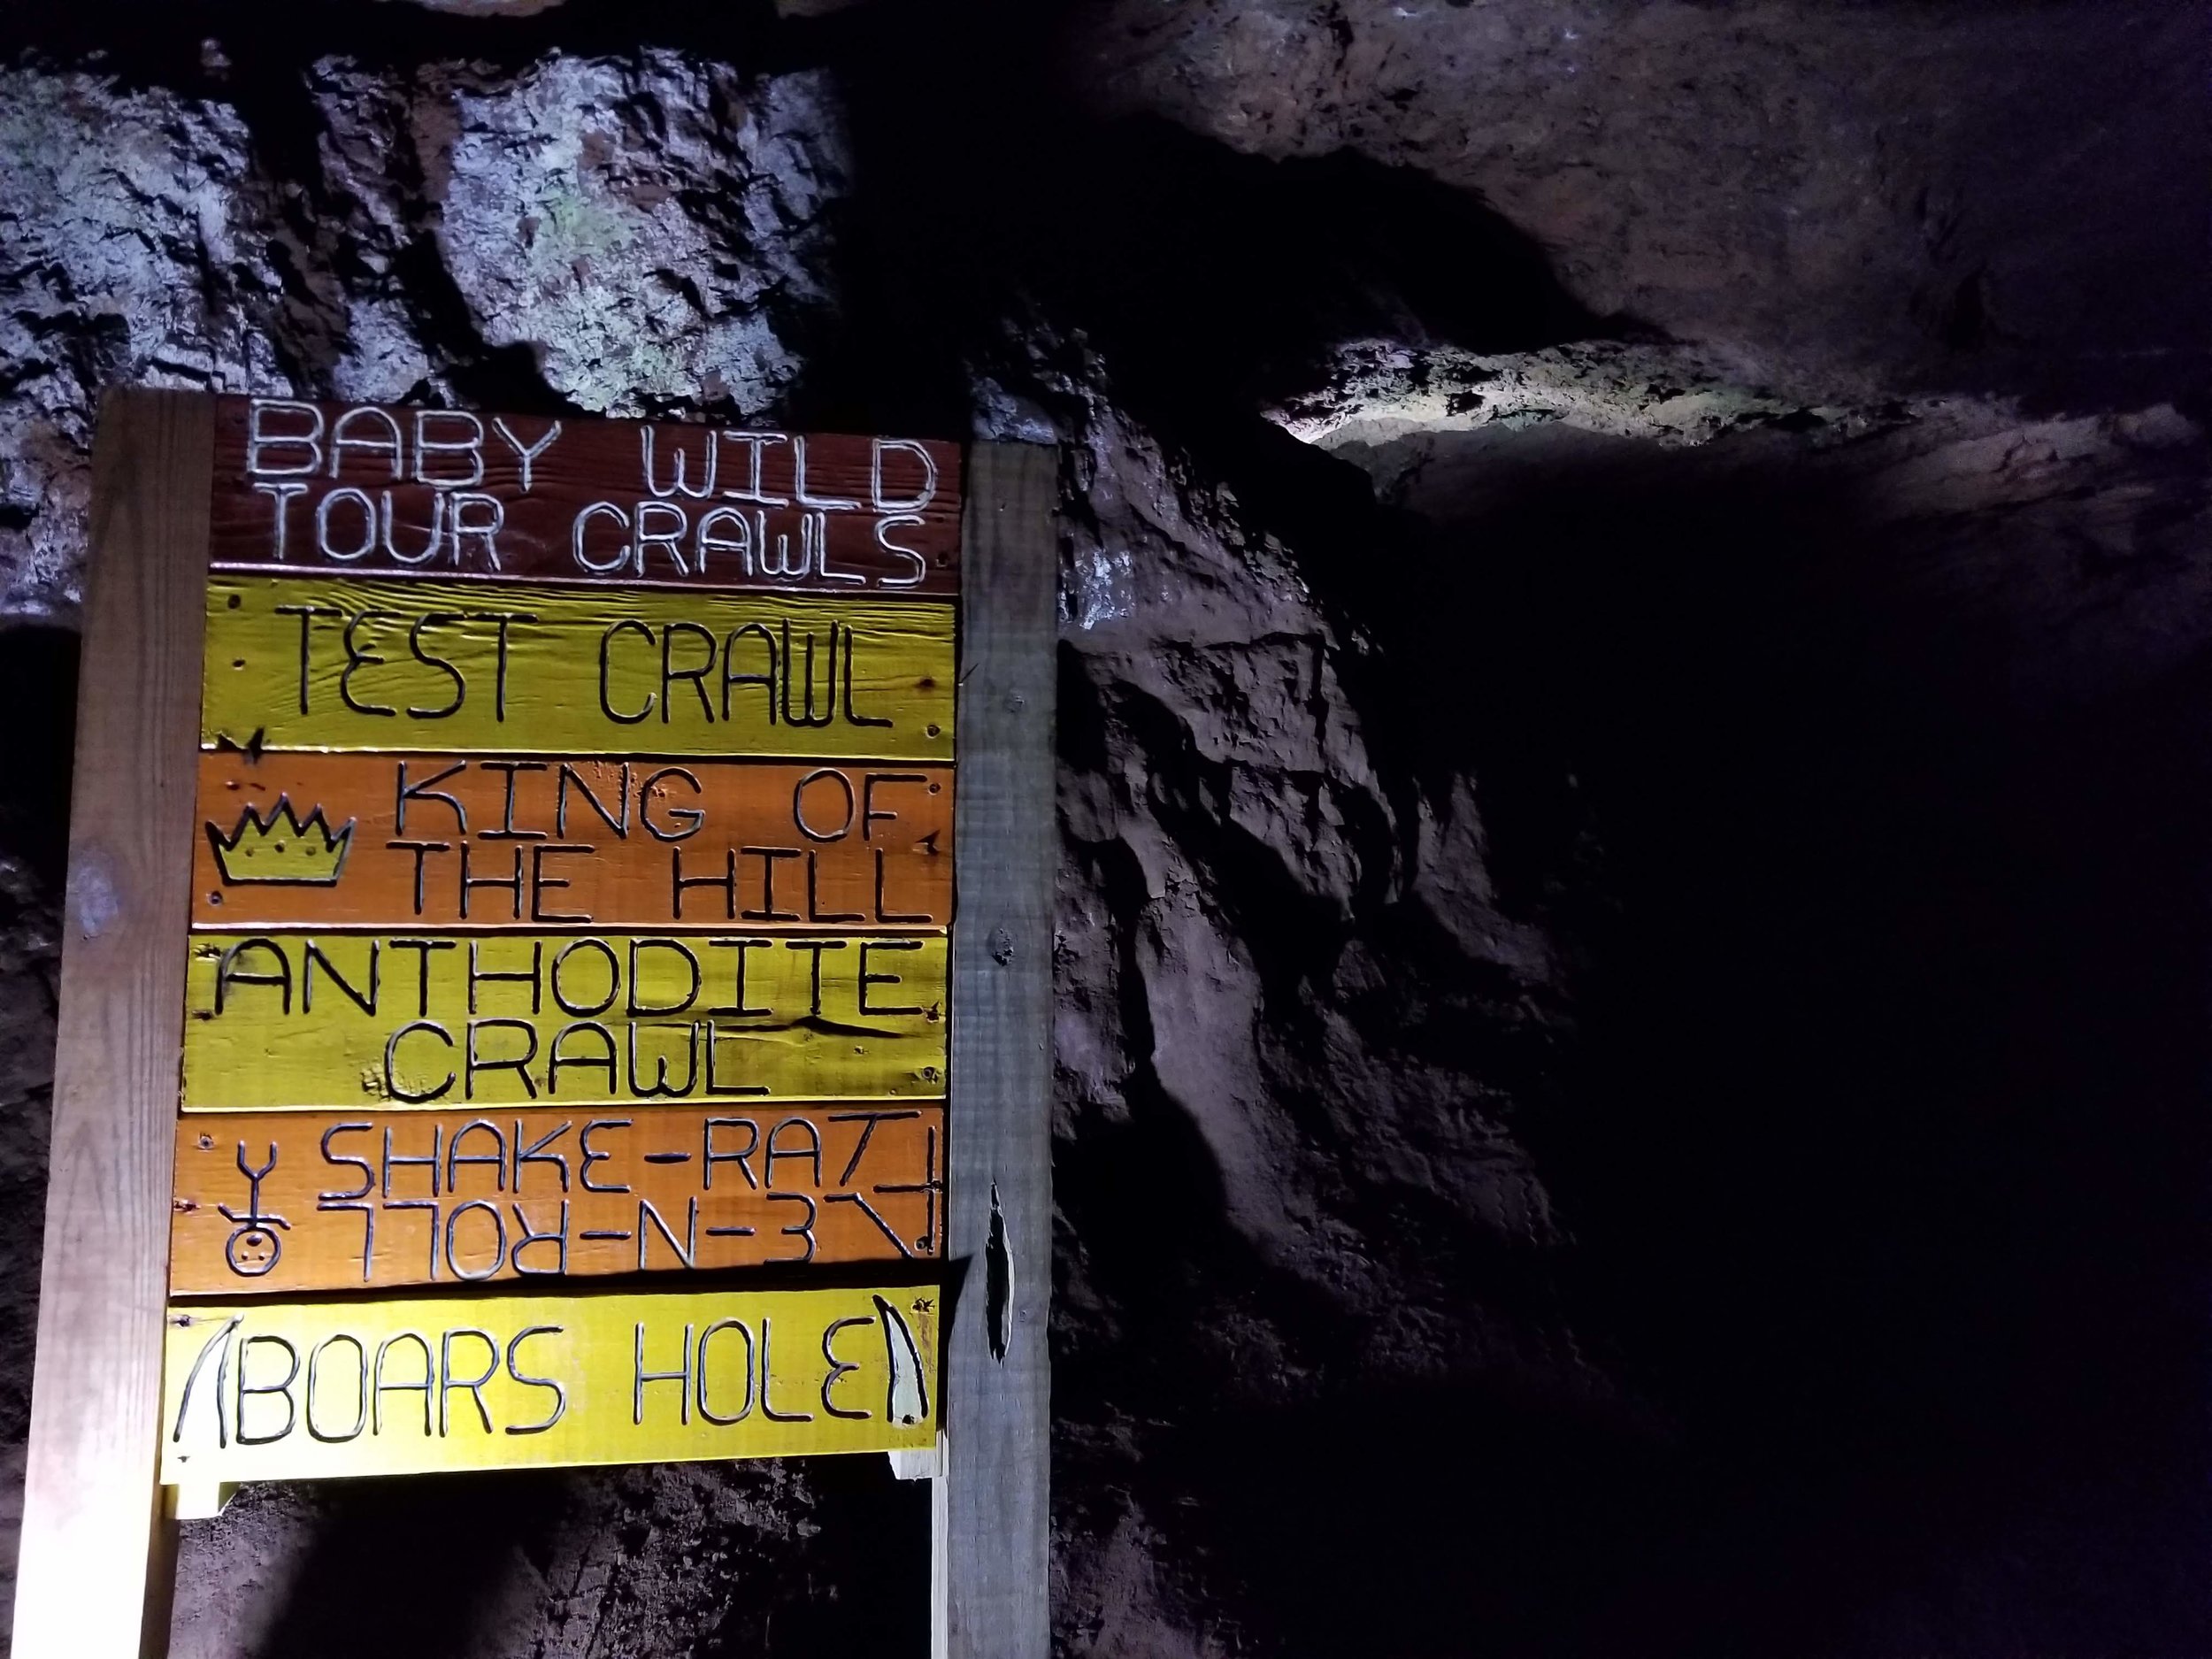 BABY WILD
TOUR CRAWLS
TEST CRAWL
KING OF
THE HILL
ANTHODITE
CRAWL
SHAKE-RATT
LE-N-ROLL
BOARS HOLE